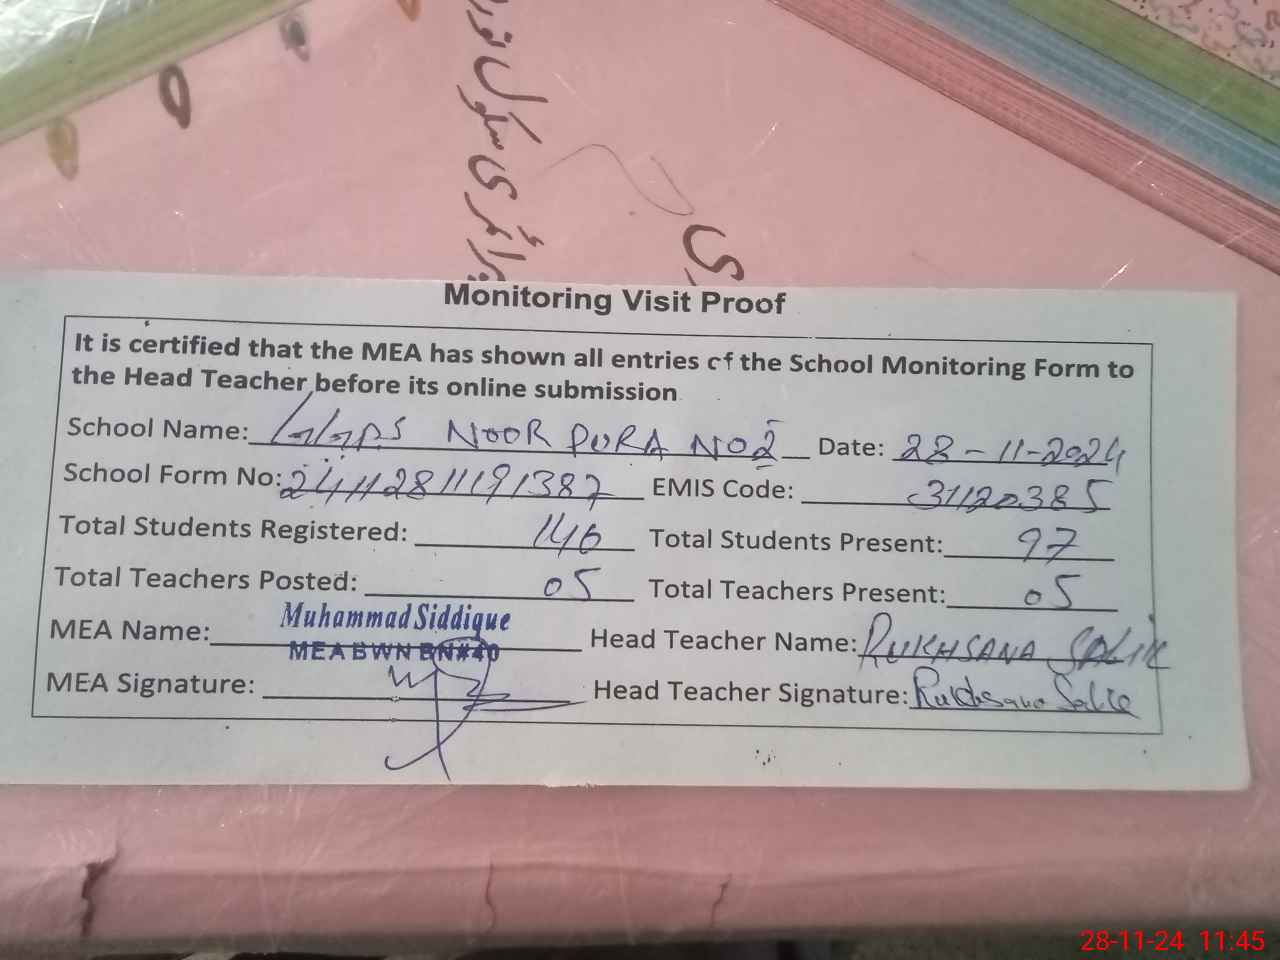 پرائمری سکول نور
ی
Monitoring Visit Proof
It is certified that the MEA has shown all entries of the School Monitoring Form to
the Head Teacher before its online submission
School Name: GGPS NOOR PURA NO2 Date: 28-11-2024
School Form No: 24112811191387 EMIS Code: 31120385
Total Students Registered: 146 Total Students Present: 97
Total Teachers Posted: 05 Total Teachers Present: 05
MEA Name: Muhammad Siddique Head Teacher Name: RUKHSANA SALIK
MEA BWN BN#40
MEA Signature: Head Teacher Signature: Rukhsana Salik
28-11-24 11:45